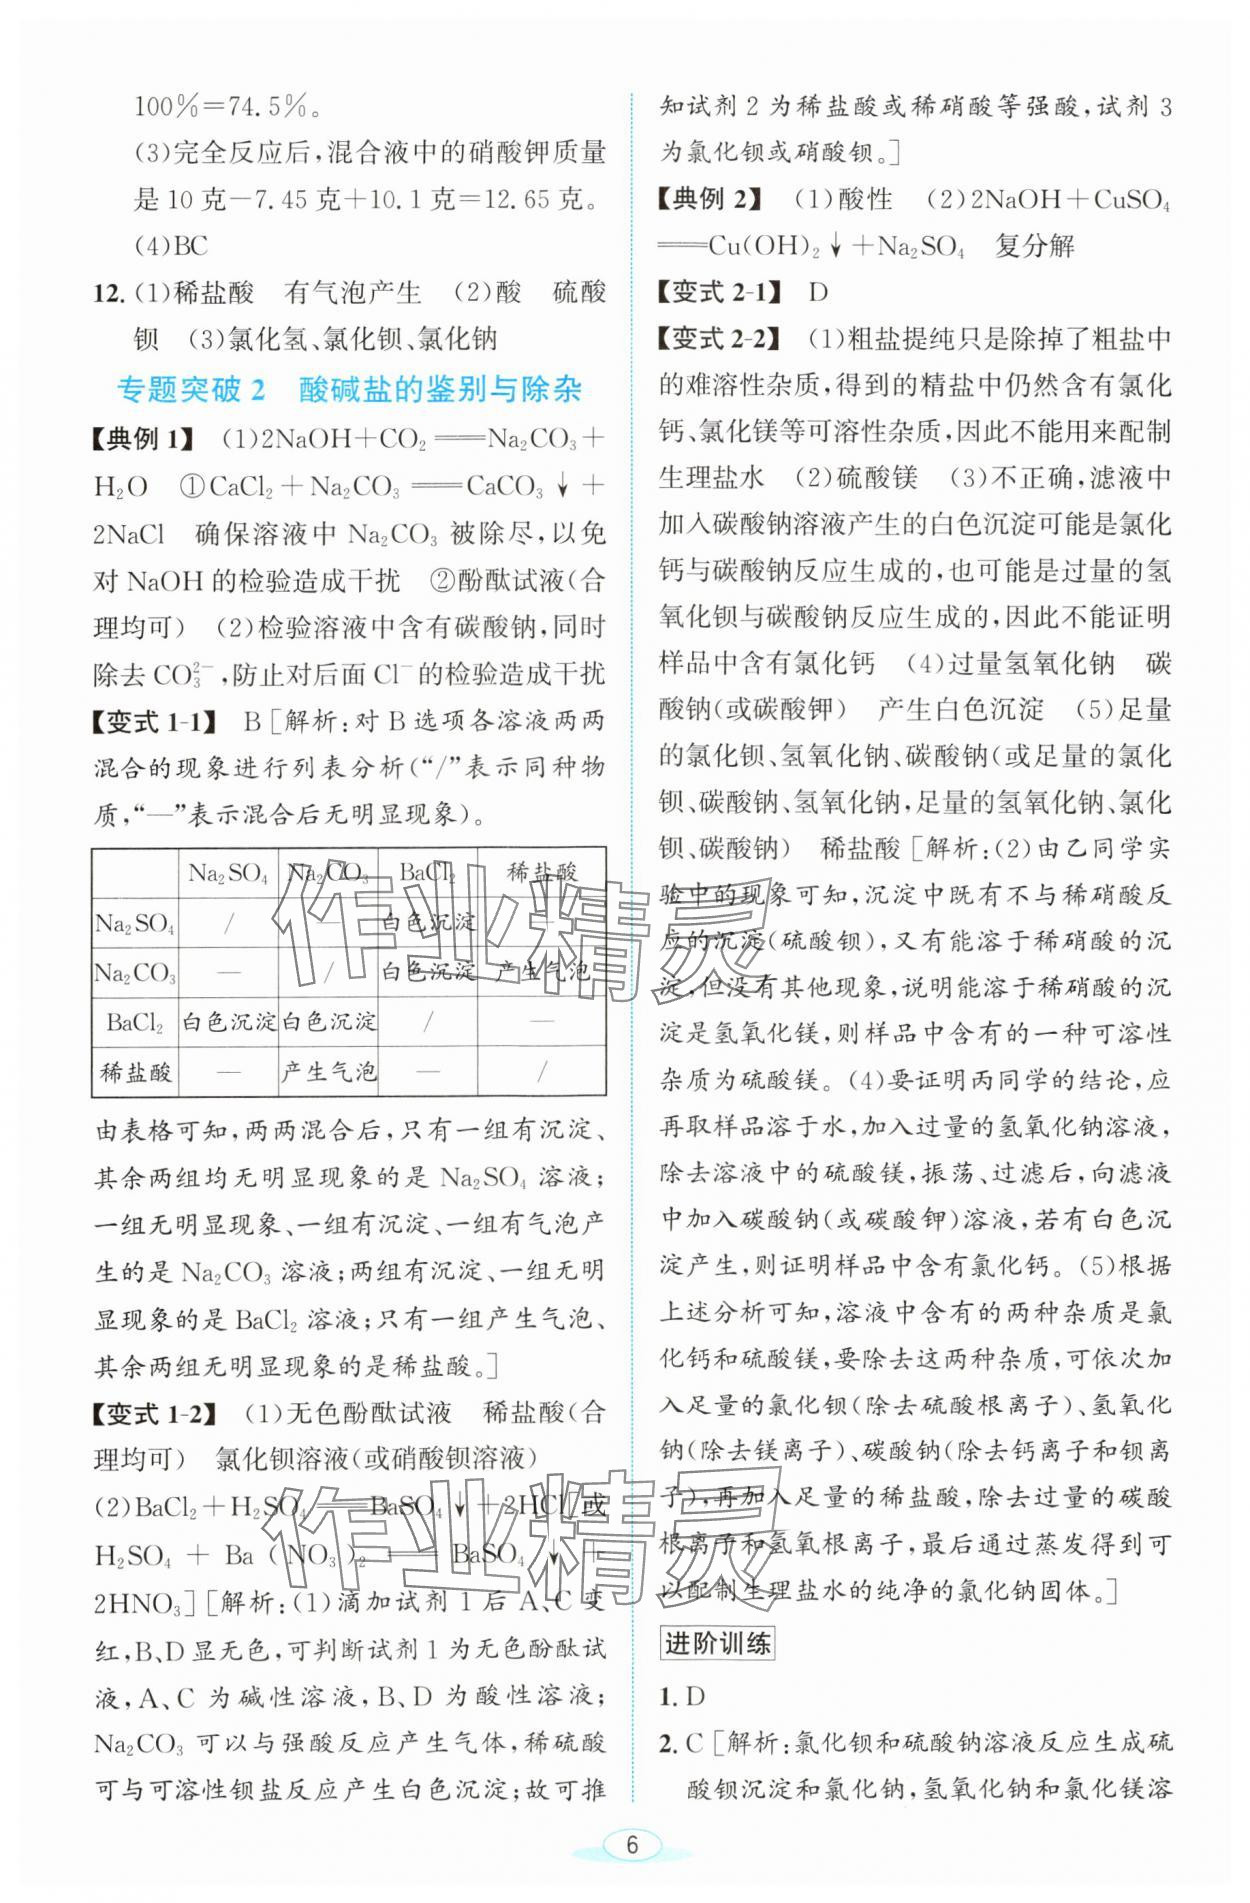 100%＝74.5%。
(3)完全反应后,混合液中的硝酸钾质量
是10克－7.45克＋10.1克＝12.65克。
(4)BC
12. (1)稀盐酸　有气泡产生　(2)酸　硫酸
钡　(3)氯化氢、氯化钡、氯化钠
专题突破2　酸碱盐的鉴别与除杂
【典例1】　(1)2NaOH＋CO₂══Na₂CO₃＋
H₂O　①CaCl₂＋Na₂CO₃══CaCO₃↓＋
2NaCl　确保溶液中Na₂CO₃被除尽,以免
对NaOH的检验造成干扰　②酚酞试液(合
理均可)　(2)检验溶液中含有碳酸钠,同时
除去CO₃²⁻,防止对后面Cl⁻的检验造成干扰
【变式1-1】　B［解析:对B选项各溶液两两
混合的现象进行列表分析(“/”表示同种物
质,“—”表示混合后无明显现象)。
Na₂SO₄　Na₂CO₃　BaCl₂　稀盐酸
Na₂SO₄　/　—　白色沉淀　—
Na₂CO₃　—　/　白色沉淀　产生气泡
BaCl₂　白色沉淀　白色沉淀　/　—
稀盐酸　—　产生气泡　—　/
由表格可知,两两混合后,只有一组有沉淀、
其余两组均无明显现象的是Na₂SO₄溶液;
一组无明显现象、一组有沉淀、一组有气泡产
生的是Na₂CO₃溶液;两组有沉淀、一组无明
显现象的是BaCl₂溶液;只有一组产生气泡、
其余两组无明显现象的是稀盐酸。］
【变式1-2】　(1)无色酚酞试液　稀盐酸(合
理均可)　氯化钡溶液(或硝酸钡溶液)
(2)BaCl₂＋H₂SO₄══BaSO₄↓＋2HCl［或
H₂SO₄＋Ba(NO₃)₂══BaSO₄↓＋
2HNO₃］［解析:(1)滴加试剂1后A、C变
红,B、D显无色,可判断试剂1为无色酚酞试
液,A、C为碱性溶液,B、D为酸性溶液;
Na₂CO₃可以与强酸反应产生气体,稀硫酸
可与可溶性钡盐反应产生白色沉淀;故可推
知试剂2为稀盐酸或稀硝酸等强酸,试剂3
为氯化钡或硝酸钡。］
【典例2】　(1)酸性　(2)2NaOH＋CuSO₄
══Cu(OH)₂↓＋Na₂SO₄　复分解
【变式2-1】　D
【变式2-2】　(1)粗盐提纯只是除掉了粗盐中
的难溶性杂质,得到的精盐中仍然含有氯化
钙、氯化镁等可溶性杂质,因此不能用来配制
生理盐水　(2)硫酸镁　(3)不正确,滤液中
加入碳酸钠溶液产生的白色沉淀可能是氯化
钙与碳酸钠反应生成的,也可能是过量的氢
氧化钡与碳酸钠反应生成的,因此不能证明
样品中含有氯化钙　(4)过量氢氧化钠　碳
酸钠(或碳酸钾)　产生白色沉淀　(5)足量
的氯化钡、氢氧化钠、碳酸钠(或足量的氯化
钡、碳酸钠、氢氧化钠,足量的氢氧化钠、氯化
钡、碳酸钠)　稀盐酸［解析:(2)由乙同学实
验中的现象可知,沉淀中既有不与稀硝酸反
应的沉淀(硫酸钡),又有能溶于稀硝酸的沉
淀,但没有其他现象,说明能溶于稀硝酸的沉
淀是氢氧化镁,则样品中含有的一种可溶性
杂质为硫酸镁。(4)要证明丙同学的结论,应
再取样品溶于水,加入过量的氢氧化钠溶液,
除去溶液中的硫酸镁,振荡、过滤后,向滤液
中加入碳酸钠(或碳酸钾)溶液,若有白色沉
淀产生,则证明样品中含有氯化钙。(5)根据
上述分析可知,溶液中含有的两种杂质是氯
化钙和硫酸镁,要除去这两种杂质,可依次加
入足量的氯化钡(除去硫酸根离子)、氢氧化
钠(除去镁离子)、碳酸钠(除去钙离子和钡离
子),再加入足量的稀盐酸,除去过量的碳酸
根离子和氢氧根离子,最后通过蒸发得到可
以配制生理盐水的纯净的氯化钠固体。］
进阶训练
1. D
2. C［解析:氯化钡和硫酸钠溶液反应生成硫
酸钡沉淀和氯化钠,氢氧化钠和氯化镁溶
6
作业精灵
作业精灵